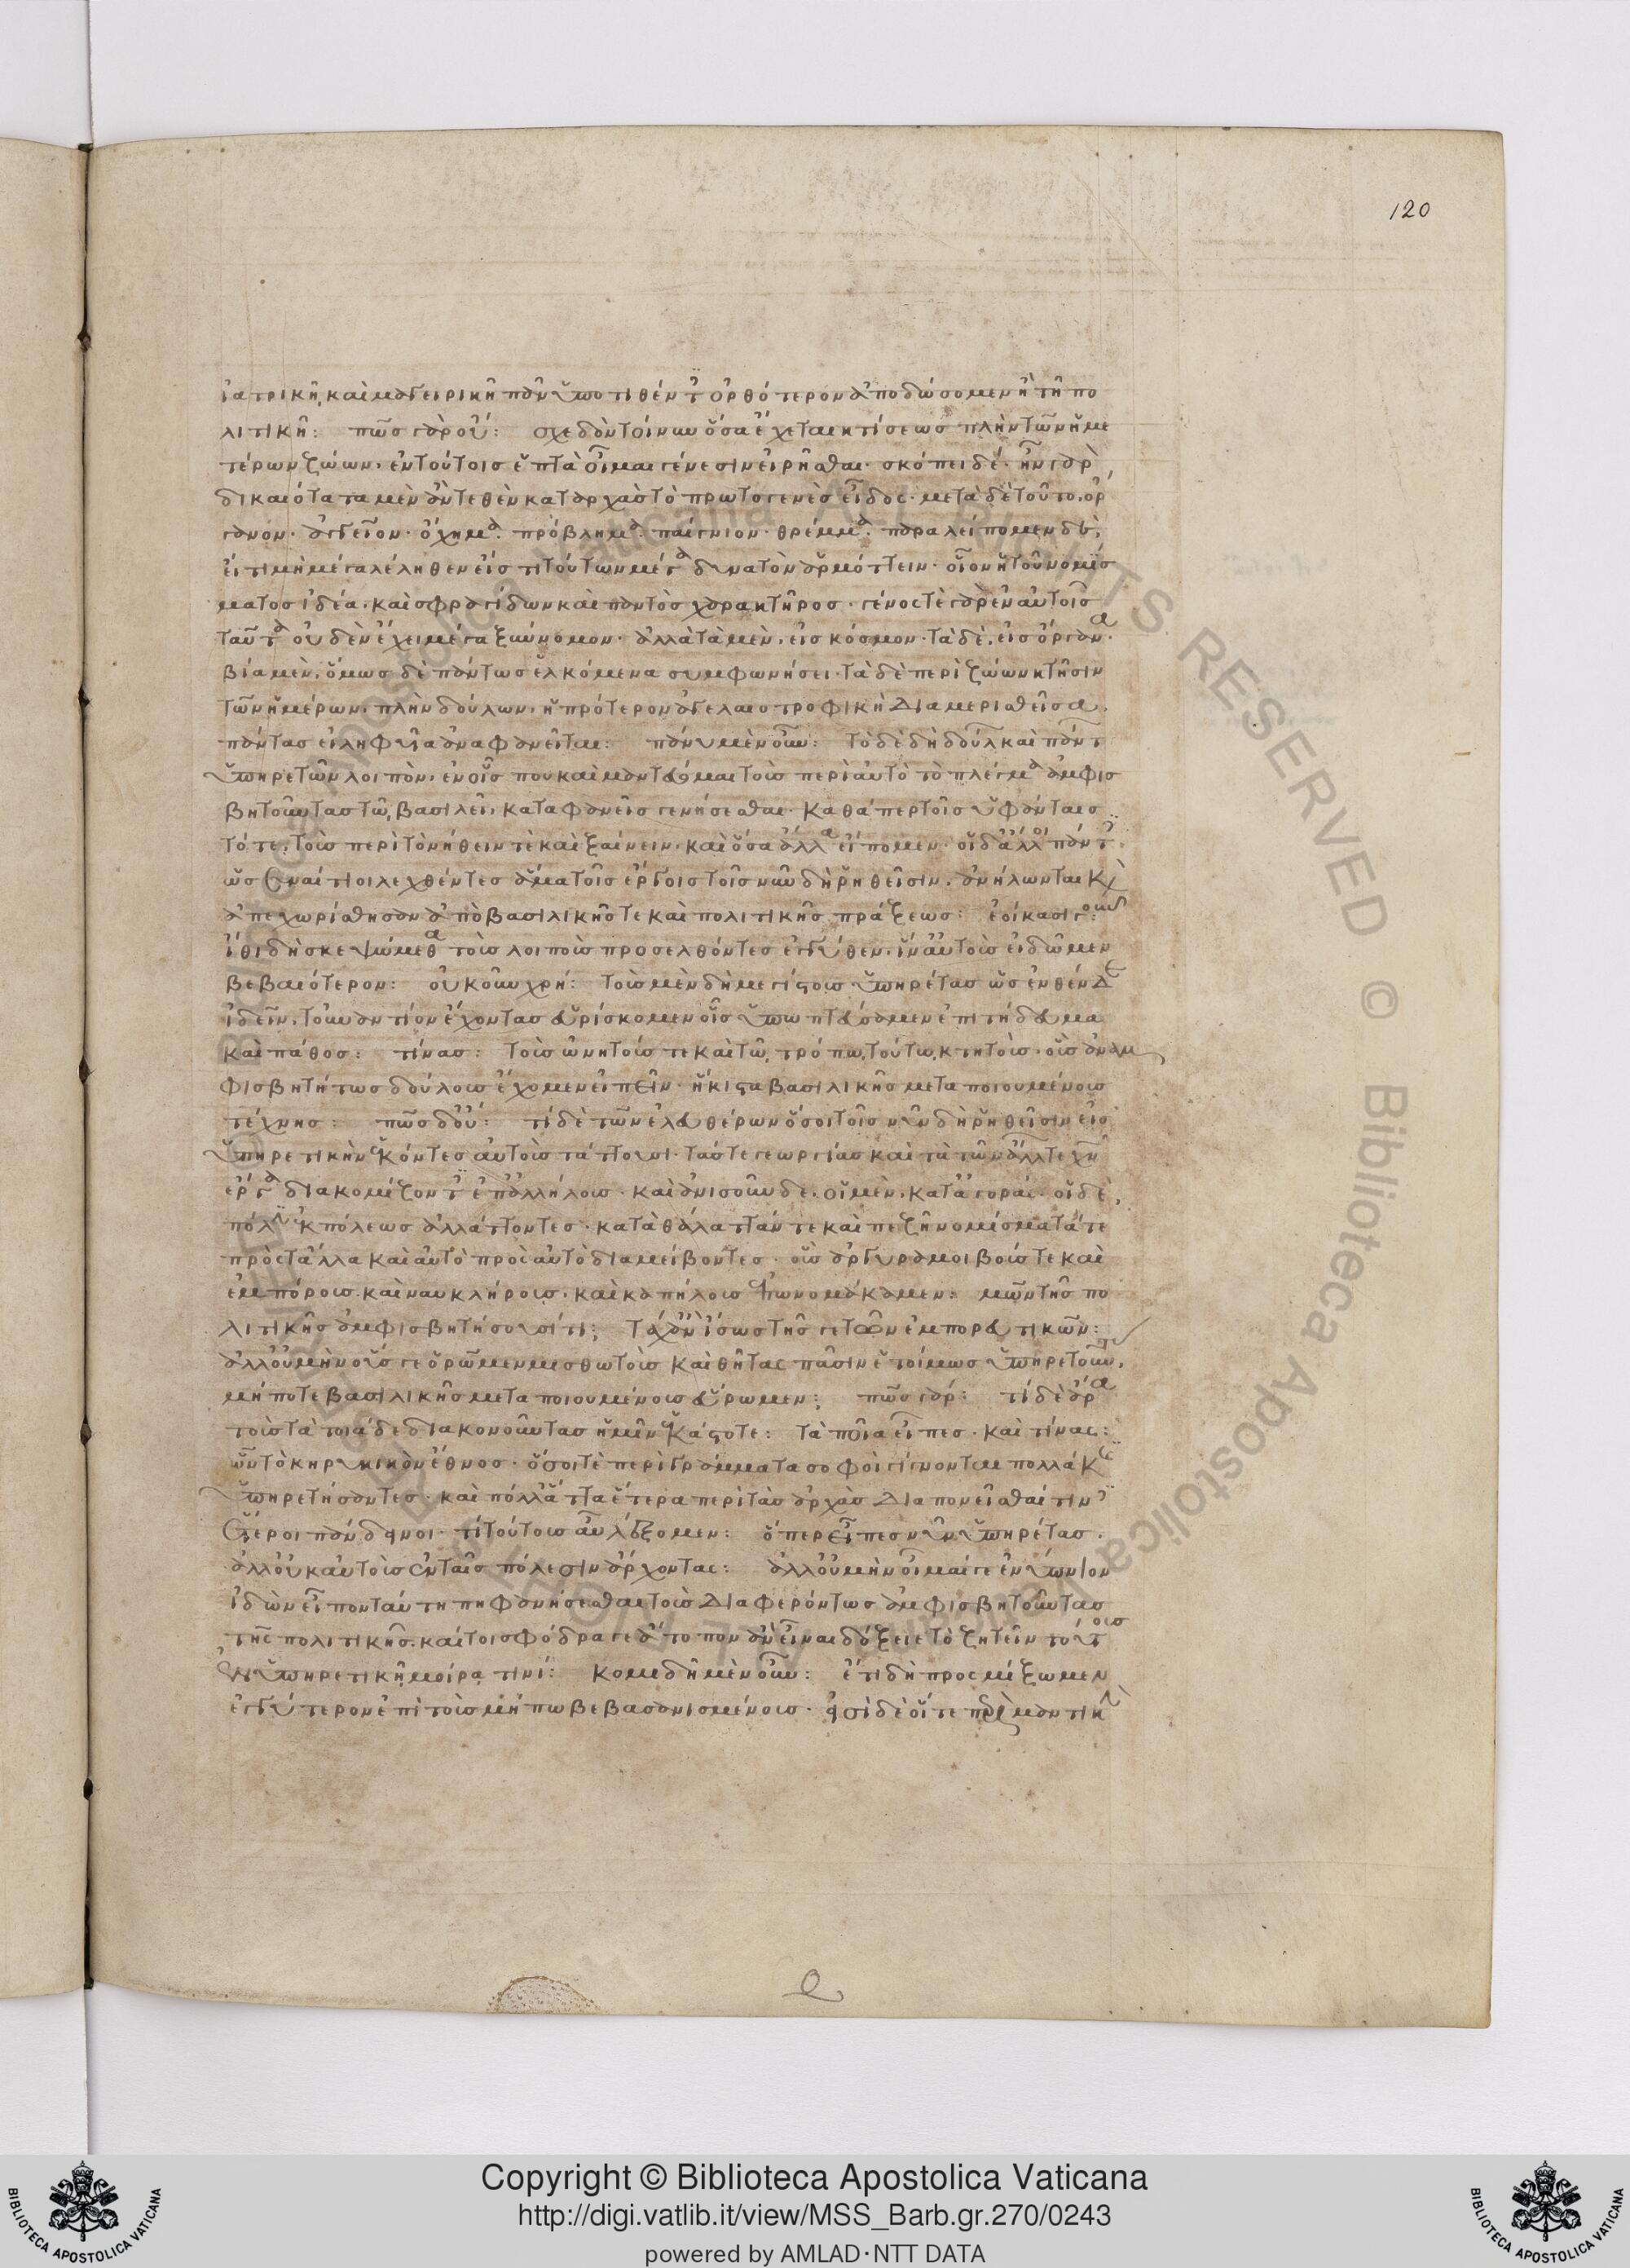 120
ἰατρικῆ, καὶ μαγειρικῆ πᾶν ὑποτιθέντ ὀρθότερον ἀποδώσομεν ἢ τῆ πο
λιτικῆ: πῶς γὰρ οὔ: σχεδὸν τοίνυν ὅσα ἔχεται κτίσεως πλὴν τῶν ἡμε
τέρων ζώων. ἐν τούτοις ἑπτὰ οἶμαι γένεσιν εἰρῆσθαι. σκόπει δέ. ἦν γὰρ
δικαιότατα μὲν ἂν τεθὲν κατ᾽ ἀρχὰς τὸ πρωτογενὲς εἶδος. μετὰ δὲ τοῦτο, ὄρ
γανον. ἀγγεῖον. ὄχημα. πρόβλημα. παίγνιον. θρέμμα. παραλείπομεν δὲ,
εἴ τι μὴ μέγα λέληθεν εἴς τι τούτων μέτα δυνατὸν ἁρμόττειν. οἷον ἡ τοῦ νομίσ
ματος ἰδέα. καὶ σφραγίδων καὶ παντὸς χαρακτῆρος. γένος τὲ γὰρ ἐν αὐτοῖς
ταῦτα οὐδὲν ἔχει μέγα ξύννομον. ἀλλὰ τὰ μὲν, εἰς κόσμον. τὰ δὲ, εἰς ὄργανα.
βία μὲν, ὅμως δὲ πάντως ἑλκόμενα συμφωνήσει. τὰ δὲ περὶ ζώων κτῆσιν
τῶν ἡμέρων. πλὴν δούλων. ἡ πρότερον ἀγελαιοτροφικὴ διαμερισθεῖσα.
πάντας εἰληφυῖα ἀναφανεῖται: πάνυ μὲν οὖν: τὸ δὲ δὴ δούλ καὶ πάντ
ὑπηρετῶν λοιπὸν. ἐν οἷς που καὶ μαντεύομαι τοὺς περὶ αὐτὸ τὸ πλέγμα ἀμφισ
βητοῦντας τῶ, βασιλεῖ, καταφανεῖς γενήσεσθαι. καθάπερ τοῖς ὑφάνταις
τότε, τοὺς περὶ τὸ νήθειν τὲ καὶ ξαίνειν. καὶ ὅσα ἄλλα εἴπομεν. οἱ δ᾽ ἄλλοι πάντ.
ὡς συναίτιοι λεχθέντες ἅμα τοῖς ἔργοις τοῖς νῦν δὴ ῥηθεῖσιν. ἀνήλωνται κ
ἀπεχωρίσθησαν ἀπὸ βασιλικῆς τε καὶ πολιτικῆς πράξεως: ἐοίκασι γοῦν:
ἴθι δὴ σκεψώμεθα τοὺς λοιποὺς προσελθόντες ἐγγύθεν. ἵν᾽ αὐτοὺς εἰδῶμεν
βεβαιότερον: οὐκοῦν χρή: τοὺς μὲν δὴ μεγίστους ὑπηρέτας ὡς ἐνθένδε
ἰδεῖν, τοὐναντίον ἔχοντας εὑρίσκομεν οἷς ὑπωπτεύσαμεν ἐπιτήδευμα
καὶ πάθος: τίνας: τοὺς ὠνητούς τε καὶ τῶ, τρόπω, τούτω, κτητούς. οὓς ἀναμ
φισβητήτως δούλους ἔχομεν εἰπεῖν. ἥκιστα βασιλικῆς μεταποιουμένους
τέχνης: πῶς δ᾽ οὔ: τί δὲ τῶν ἐλευθέρων ὅσοι τοῖς νῦν δὴ ῥηθεῖσιν εἰς
ὑπηρετικὴν ἑκόντες αὑτοὺς τάττουσι. τάς τε γεωργίας καὶ τὰ τῶν ἄλλ τεχν
ἔργα διακομίζοντ ἐπ᾽ ἀλλήλους. καὶ ἀνισοῦν δε. οἱ μὲν, κατ᾽ ἀγοράς. οἱ δὲ,
πόλιν ἐκ πόλεως ἀλλάττοντες. κατὰ θάλατταν τε καὶ πεζῆ νομίσματά τε
πρὸς τἄλλα καὶ αὐτὸ πρὸς αὐτὸ διαμείβοντες. οὓς ἀργυραμοιβούς τε καὶ
ἐμπόρους. καὶ ναυκλήρους. καὶ καπήλους ἐπωνομάκαμεν: μῶν τῆς πο
λιτικῆς ἀμφισβητήσουσί τι; τάχ᾽ ἂν ἴσως τῆς γε τῶν ἐμπορευτικῶν:
ἀλλ᾽ οὐ μὴν οὕς γε ὁρῶμεν μισθωτοὺς καὶ θῆτας πᾶσιν ἑτοίμως ὑπηρετοῦντ,
μήποτε βασιλικῆς μεταποιουμένους εὕρωμεν: πῶς γάρ: τί δὲ ἄρα
τοὺς τὰ τοιάδε διακονοῦντας ἡμῖν ἑκάστοτε: τὰ ποῖα εἶπες. καὶ τίνας:
ὧν τὸ κηρυκικὸν ἔθνος. ὅσοι τὲ περὶ γράμματα σοφοὶ γίγνονται πολλάκις
ὑπηρετήσαντες. καὶ πόλλ᾽ ἄττα ἕτερα περὶ τὰς ἀρχὰς διαπονεῖσθαί τιν
ἕτεροι πάνδεινοι. τί τούτους αὖ λέξομεν: ὅπερ εἶπες νῦν ὑπηρέτας.
ἀλλ᾽ οὐκ αὐτοὺς ἐν ταῖς πόλεσιν ἄρχοντας: ἀλλ᾽ οὐ μὴν οἶμαί γε ἐνύπνιον
ἰδὼν εἶπον ταύτη πη φανήσεσθαι τοὺς διαφερόντως ἀμφισβητοῦντας
τῆς πολιτικῆς. καίτοι σφόδρα γε ἄτοπον ἂν εἶναι δόξειε τὸ ζητεῖν τούτους
ἐν ὑπηρετικῆ μοίρα τινί: κομιδῆ μὲν οὖν: ἔτι δὴ προσμίξωμεν
ἐγγύτερον ἐπὶ τοὺς μήπω βεβασανισμένους. εἰσὶ δὲ οἵ τε περὶ μαντικὴν
Copyright © Biblioteca Apostolica Vaticana
http://digi.vatlib.it/view/MSS_Barb.gr.270/0243
powered by AMLAD·NTT DATA